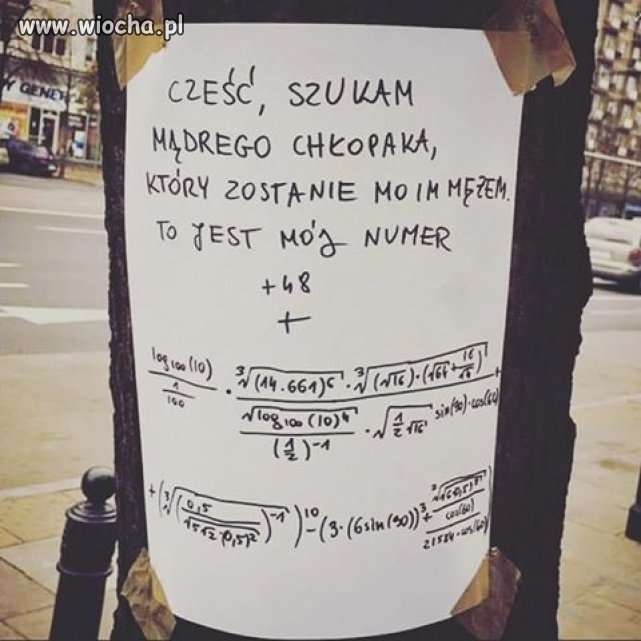 www.wiocha.pl
Y GENER
CZEŚĆ, SZUKAM
MĄDREGO CHŁOPAKA,
KTÓRY ZOSTANIE MOIM MĘŻEM.
TO JEST MÓJ NUMER
+48
+
log₁₀₀(10)/(1/100) · (∛((14·661)⁶) · ∛((√16)·(√64+16/√16)))/(√(log₁₀₀(10)⁴)/((1/2)⁻¹) · √(1/2 √16) sin(90)·cos(60)) +
+ (∛((0,5/√(512·(0,5)²))⁻¹))¹⁰ − (3·(6sin(90))³ +
cos(60)
21584·cos(60)